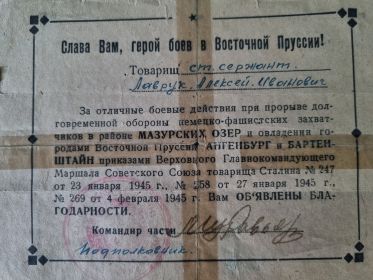 Слава Вам, герой боев в Восточной Пруссии!
Товарищ ст. сержант.
Лаврук, Алексей Иванович
За отличные боевые действия при прорыве дол-
говременной обороны немецко-фашистских захват-
чиков в районе МАЗУРСКИХ ОЗЕР и овладения го-
родами Восточной Пруссии АНГЕНБУРГ и БАРТЕН-
ШТАЙН приказами Верховного Главнокомандующего
Маршала Советского Союза товарища Сталина № 247
от 23 января 1945 г., № 258 от 27 января 1945 г.,
№ 269 от 4 февраля 1945 г. Вам ОБ'ЯВЛЕНЫ БЛА-
ГОДАРНОСТИ.
Командир части
Подполковник.